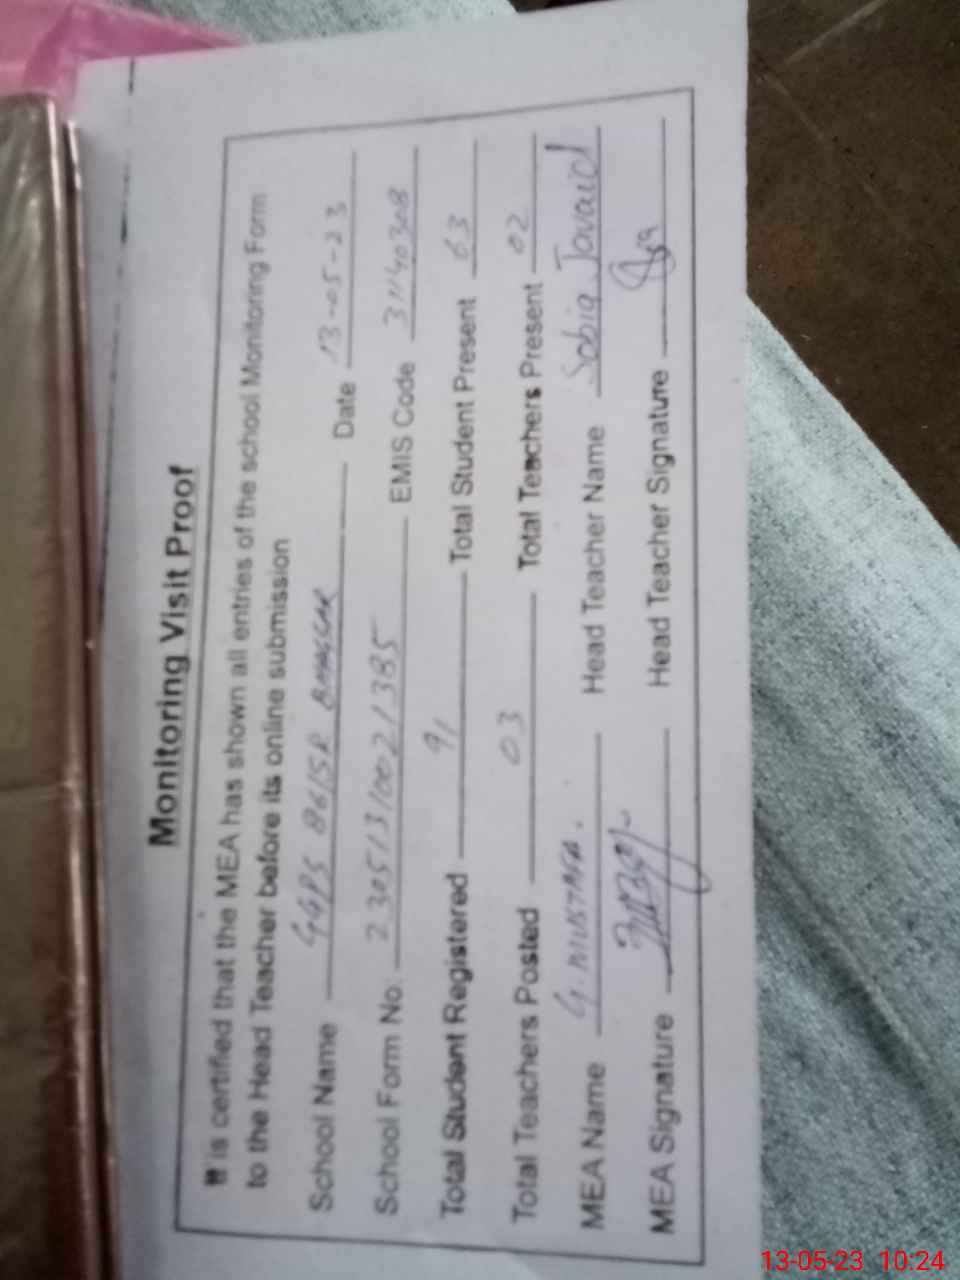 Monitoring Visit Proof
It is certified that the MEA has shown all entries of the school Monitoring Form
to the Head Teacher before its online submission
School Name GGPS 86/5R Date 13-05-23
School Form No. 23051310021385 EMIS Code 31140308
Total Student Registered 91 Total Student Present 63
Total Teachers Posted 03 Total Teachers Present 02
MEA Name G. MUSTAFA. Head Teacher Name Sobia Javaid
MEA Signature Head Teacher Signature
13-05-23 10:24